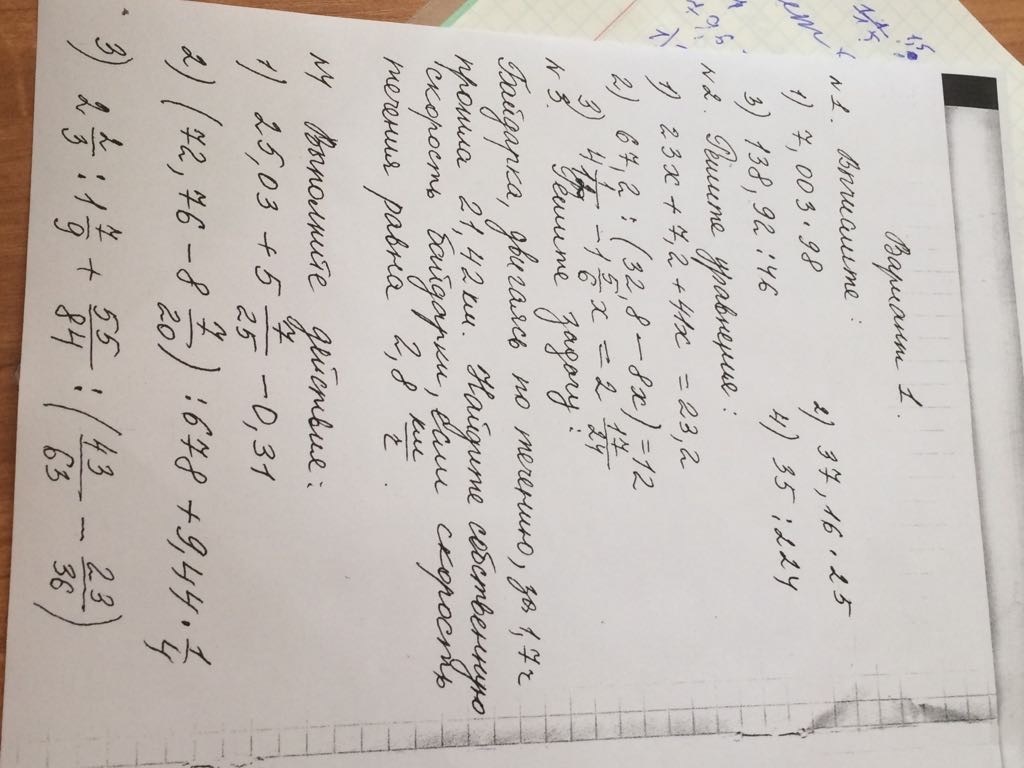 Вариант 1.
№1. Вычислите:
1) 7,003·98 2) 37,16·25
3) 138,92:46 4) 35:224
№2. Решите уравнение:
1) 23x+7,2+41x=23,2
2) 67,2:(32,8-8x)=12
3) -1 5/6 x = 2 17/24
№3. Решите задачу:
Байдарка, двигаясь по течению, за 1,7ч
прошла 21,42 км. Найдите собственную
скорость байдарки, если скорость
течения равна 2,8 км/ч.
№4 Выполните действие:
1) 25,03 + 5 7/25 - 0,31
2) (72,76 - 8 7/20):678 + 9,444·1/4
3) 2 2/3 : 1 7/9 + 55/84 : (43/63 - 23/36)